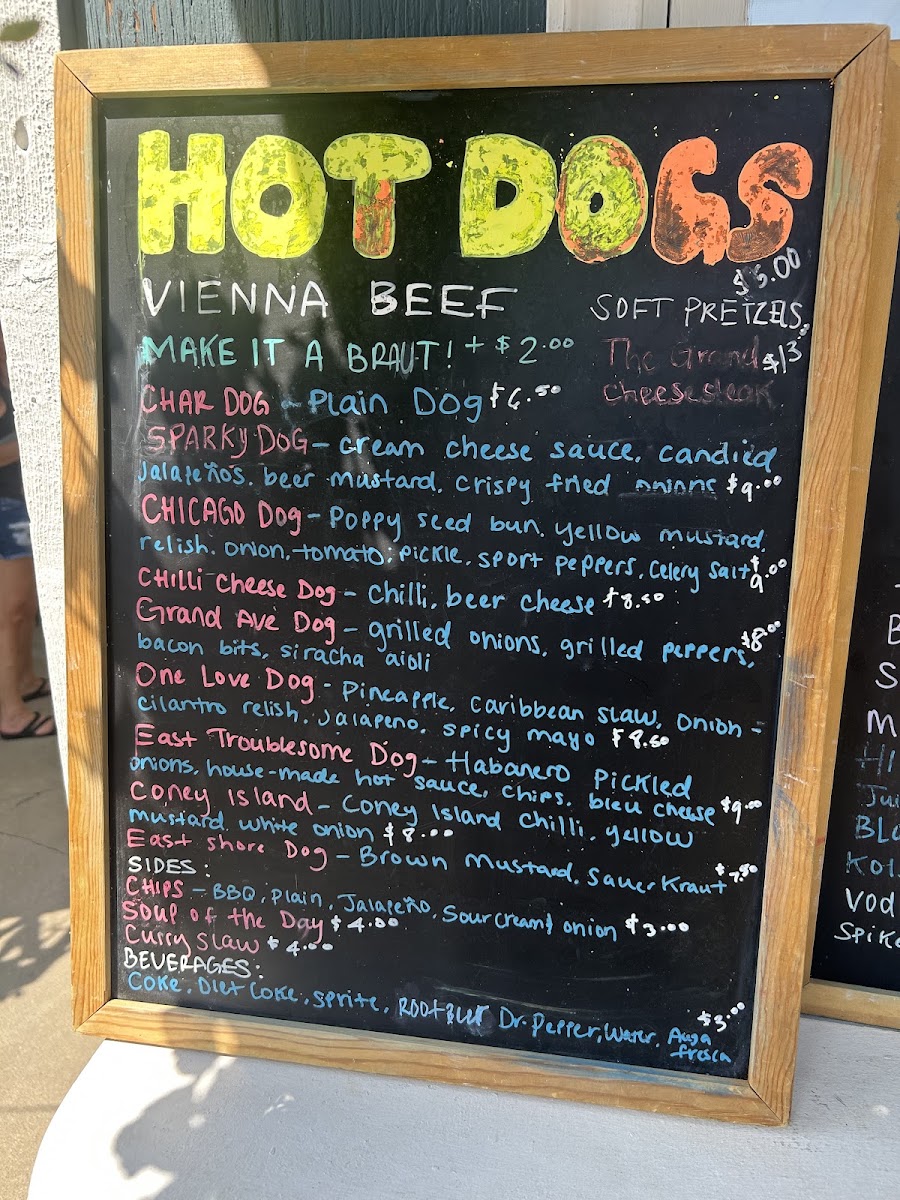 HOT DOGS
$5.00
VIENNA BEEF SOFT PRETZELS
MAKE IT A BRAUT! + $2.00
The Grand $13.00
Cheesesteak
CHAR DOG - Plain Dog $6.50
SPARKY DOG - cream cheese sauce, candied
Jalapeños, beer mustard, crispy fried onions $9.00
CHICAGO DOG - Poppy seed bun, yellow mustard,
relish, onion, tomato, pickle, sport peppers, celery salt $9.00
CHILLI Cheese DOG - chilli, beer cheese $8.50
Grand Ave Dog - grilled onions, grilled peppers, $8.00
bacon bits, siracha aioli
One Love Dog - Pineapple, Caribbean slaw, onion -
cilantro relish, jalapeno, spicy mayo $8.50
East Troublesome Dog - Habanero Pickled
onions, house-made hot sauce, chips, bleu cheese $9.00
Coney Island - Coney Island chilli, yellow
mustard, white onion $8.00
East shore Dog - Brown Mustard, SauerKraut $7.50
SIDES:
CHIPS - BBQ, Plain, Jalapeño, Sour cream & onion $3.00
Soup of the Day $4.00
Curry Slaw $4.00
BEVERAGES:
Coke, Diet Coke, Sprite, ROOT BEER Dr. Pepper, Water, Auga fresca $3.00
B
S
M
HI
Jui
BLO
Kol
VOD
Spike